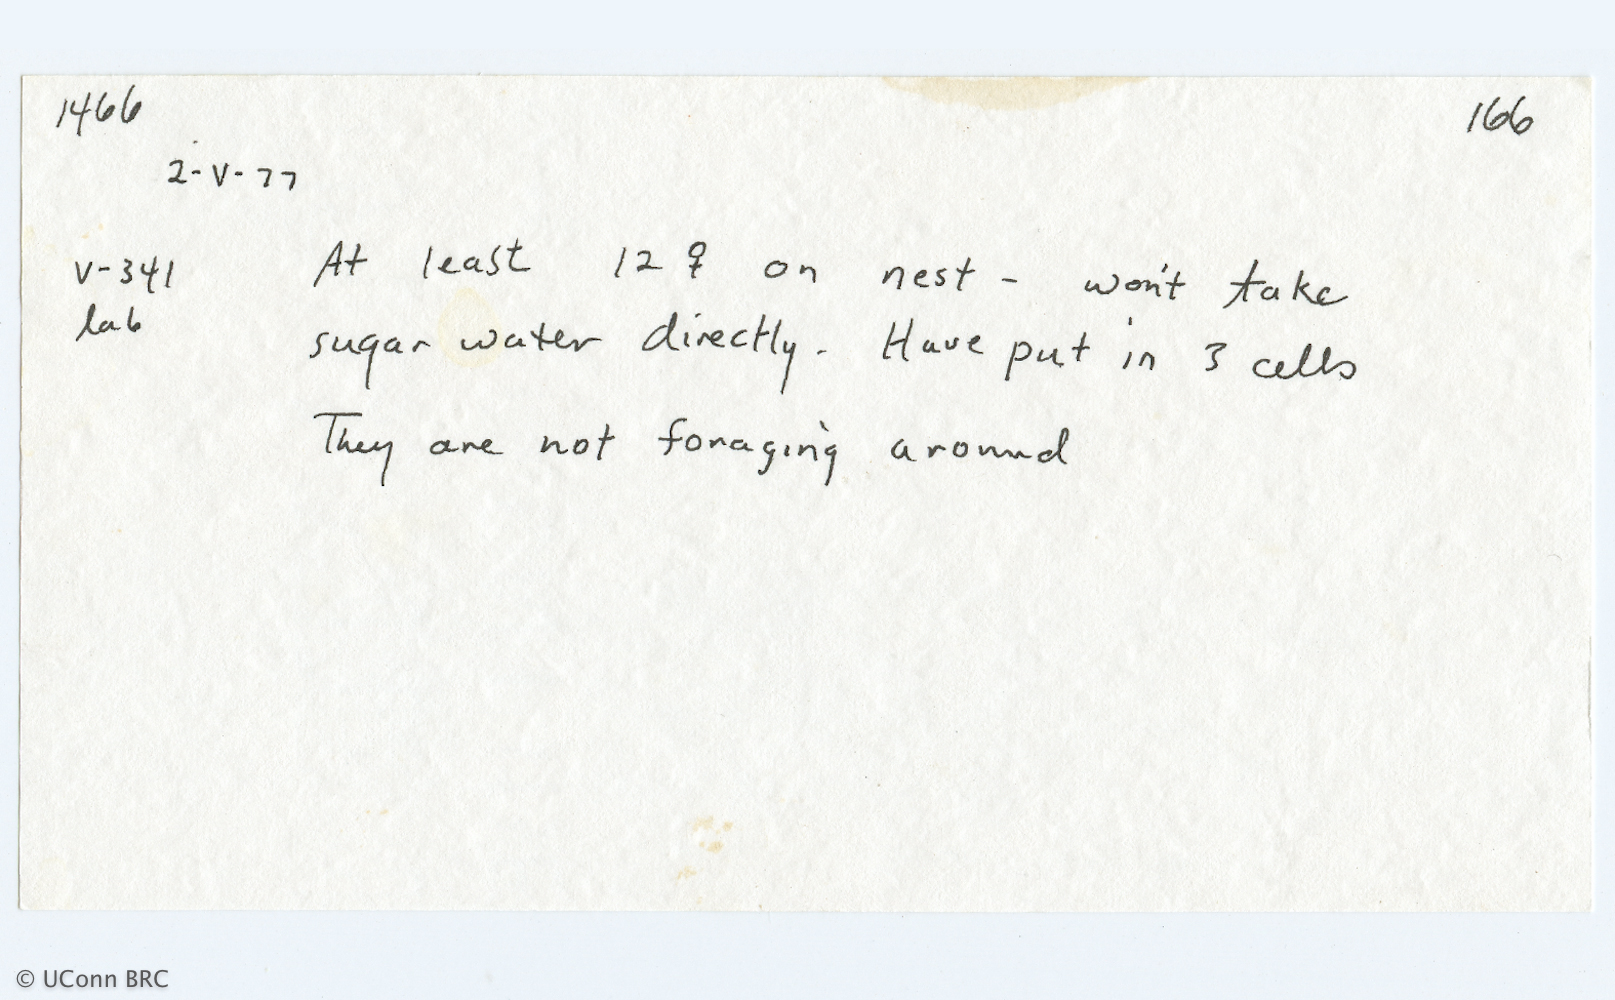 1466
166
2-V-77
V-341
lab
At least 12 ♀ on nest - won't take
sugar water directly. Have put in 3 cells
They are not foraging around
© UConn BRC